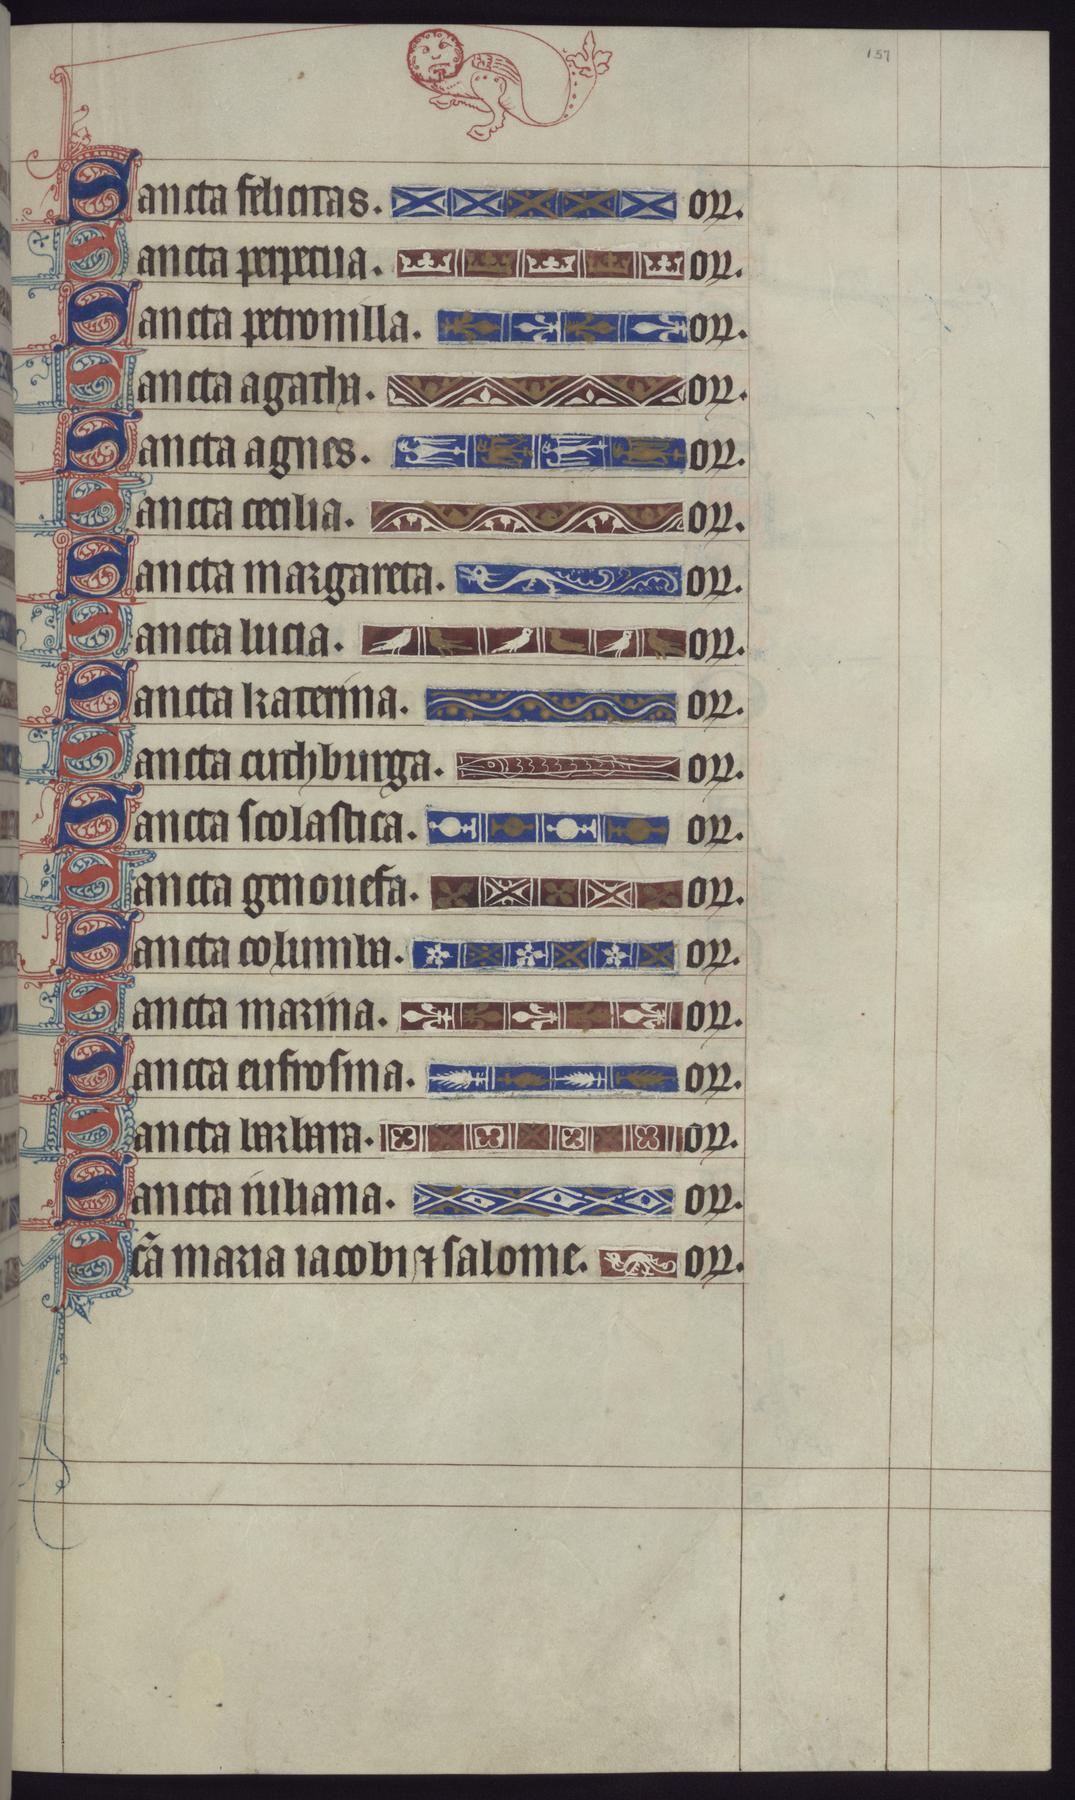 157
Sancta felicitas. or.
Sancta perpetua. or.
Sancta petronilla. or.
Sancta agatha. or.
Sancta agnes. or.
Sancta cecilia. or.
Sancta margareta. or.
Sancta lucia. or.
Sancta katerina. or.
Sancta cuthburga. or.
Sancta scolastica. or.
Sancta genouefa. or.
Sancta columba. or.
Sancta marina. or.
Sancta eufrosina. or.
Sancta barbara. or.
Sancta iuliana. or.
Scã maria iacobi ⁊ salome. or.